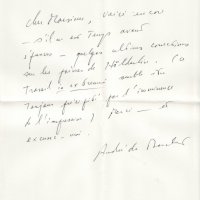 Cher Monsieur, voici encore
– s'il en est temps avant
épreuves – quelques ultimes corrections
sur les poèmes de Hölderlin. Ce
travail
semble être
toujours précipité par l'imminence
de l'impression ! Merci – et
excusez-moi.
André du Bouchet